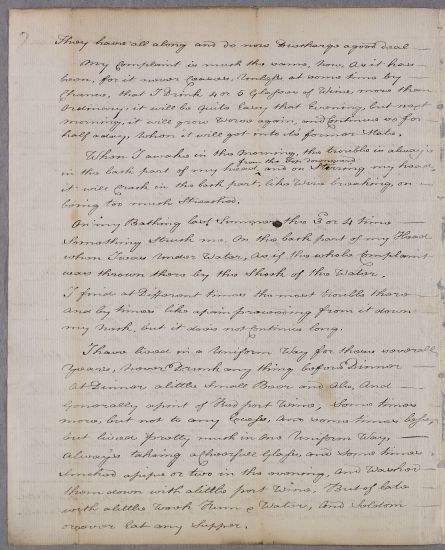 They have all along and do now Discharge a good deal —
My Complaint is much the same, Now, as it has
been, for it never Ceases, Unless at some time by
Chance, that I Drink 4 or 5 Glasses of Wine, more than
Ordinary, it will be Quite Easy, that Evening, but next
morning, it will grow Worse again, and Continues so for
half a day, When it will get into its former State.
When I awake in the Morning, the trouble is always
from the Top downward
in the back part of my head, and on stirring my head,
it will Crack in the back part, like Wire breaking, on
being too much Stretched.
On my Bathing last Summer this 3 or 4 time
Something Struck me, On the back part of my Head
when I was Under Water, As if the whole Complaint
was thrown there by the Shock of the Water.
I find at Different times the most trouble there
And by times like a pain proceeding from it down
my Neck, but it does not Continue long.
I have lived in a Uniform Way for these several
Years, Never Drank any thing before dinner
at Dinner a little Small Beer and Ale, And
Generally a pint of Red port Wine, Some times
more, but not to any Excess, And some times less,
but lived Pretty much in One Uniform Way,
Always taking a Cheerfull Glass, and Some times
Smoked a pipe or two in the evening, And Washed
them down with a little port Wine. But of late
with a little Weak Rum & Water, And Seldom
or ever Eat any Supper.